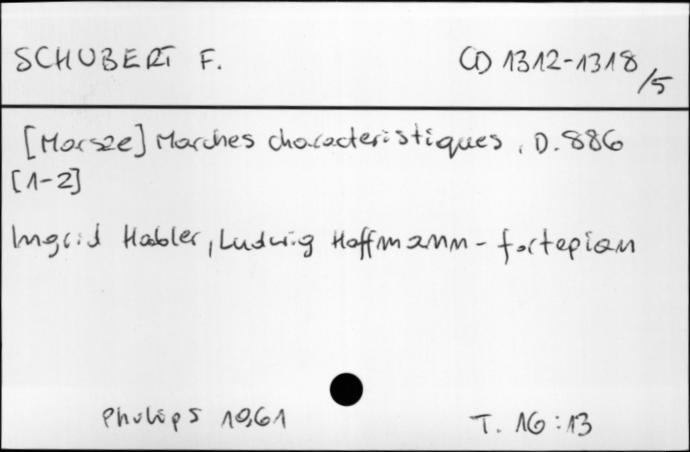 SCHUBERT F. CD 1312-1318/5
[Marsze] Marches characteristiques, D. 886
[1-2]
Ingrid Habler, Ludwig Hoffmann - fortepian
Philips 1961 T. 16:13